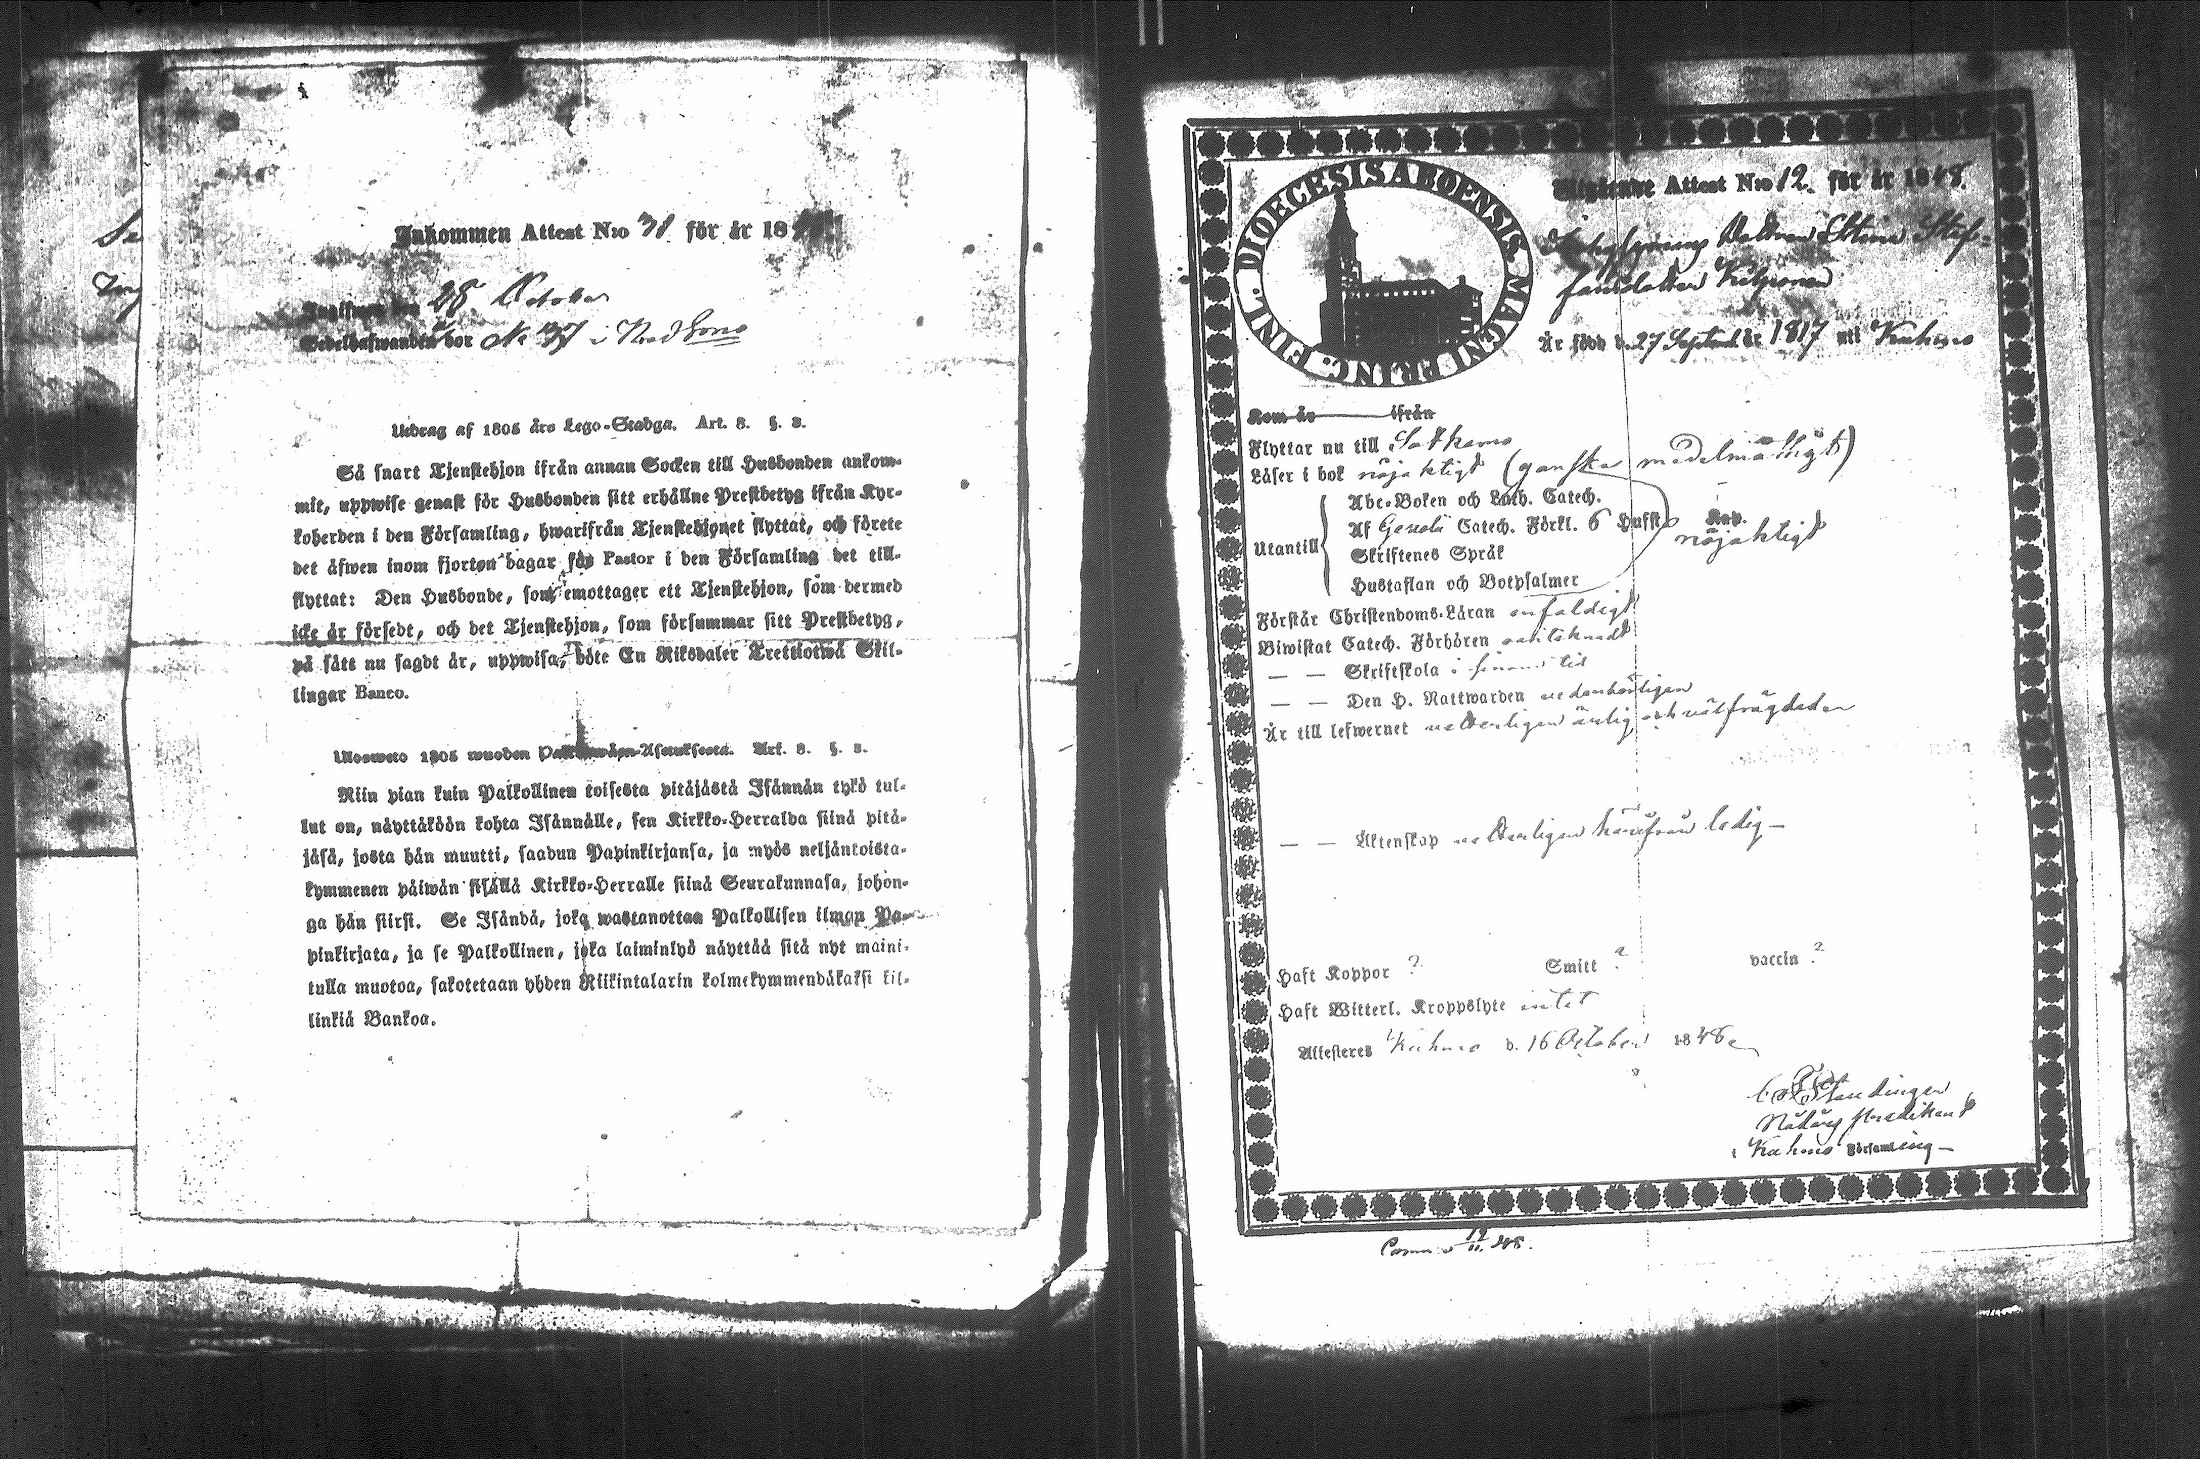 Inkommen Attest N:o 31 för år 18
Inlefwer den 28 October
Sedelhafwanden bor N:o 37 i
Utdrag af 1805 års Lego-Stadga. Art. 8. §. 3.
Så snart Tjenstehjon ifrån annan Socken till Husbonden ankom-
mit, uppwise genast för Husbonden sitt erhållne Prestbetyg ifrån Kyr-
koherden i den Församling, hwarifrån Tjenstehjonet flyttat, och förete
det äfwen inom fjorton dagar för Pastor i den Församling det till-
flyttat: Den Husbonde, som emottager ett Tjenstehjon, som dermed
icke är försedt, och det Tjenstehjon, som försummar sitt Prestbetyg,
på sätt nu sagdt är, uppwisa, böte En Riksdaler Trettiotwå Skil-
lingar Banco.
Ulosweto 1805 wuoden Palkkawäen-Asetuksesta. Art. 8. §. 3.
Niin pian kuin Palkollinen toisesta pitäjästä Isännän tykö tul-
lut on, näyttäköön kohta Isännälle, sen Kirkko-Herralda siinä pitä-
jäsä, josta hän muutti, saadun Papinkirjansa, ja myös neljäntoista-
kymmenen päiwän sisällä Kirkko-Herralle siinä Seurakunnasa, johon-
ga hän siirsi. Se Isändä, joka wastanottaa Palkollisen ilman Pa-
pinkirjata, ja se Palkollinen, joka laiminlyö näyttää sitä nyt maini-
tulla muotoa, sakotetaan yhden Riikintalarin kolmekymmendäkaksi kil-
linkiä Bankoa.
DIOECESIS ABOENSIS. MAGNI PRINC. FINL.
Utgående Attest N:o 12. för år 1848.
Dottren Stina Stef-
fansdotter Kilponen
Är född d. 27 Septemb. år 1817 uti Kuhmo
Kom år ifrån
Flyttar nu till Sotkamo
Läser i bok nöjaktigt (ganska medelmåttigt)
Utantill
Abc-Boken och Luth. Catech.
Af Catech. Förkl. 6 Hufst. Kap.
nöjaktigt
Skriftenes Språk
Hustaflan och Botpsalmer
Förstår Christendoms-Läran enfaldigt
Biwistat Catech. Förhören antecknadt
— — Skriftskola i sinom tid
— — Den H. Nattwarden wederbörligen
Är till lefwernet wetterligen ärlig och välfrägdad
— — Äktenskap wetterligen härifrån ledig —
Haft Koppor ? Smitt ? vaccin ?
Haft Witterl. Kroppslyte intet
Attesteres Kuhmo d. 16 October 1848
Standinger
Nådårs Predikant
i Kuhmo Församling —